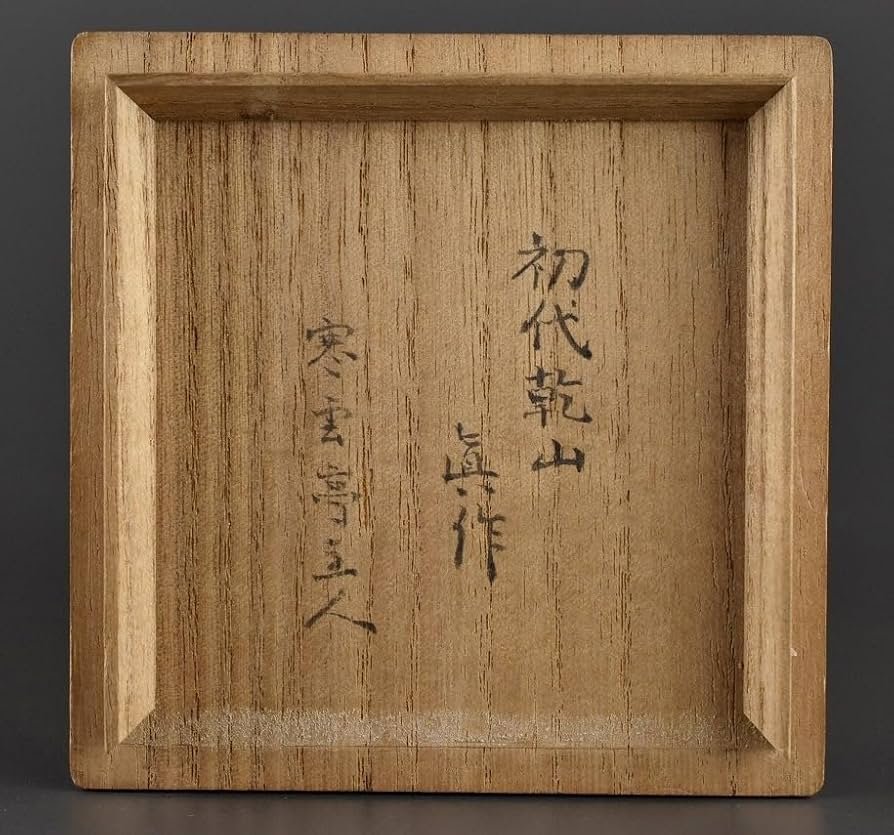 初代乾山
眞作
寒雲亭主人